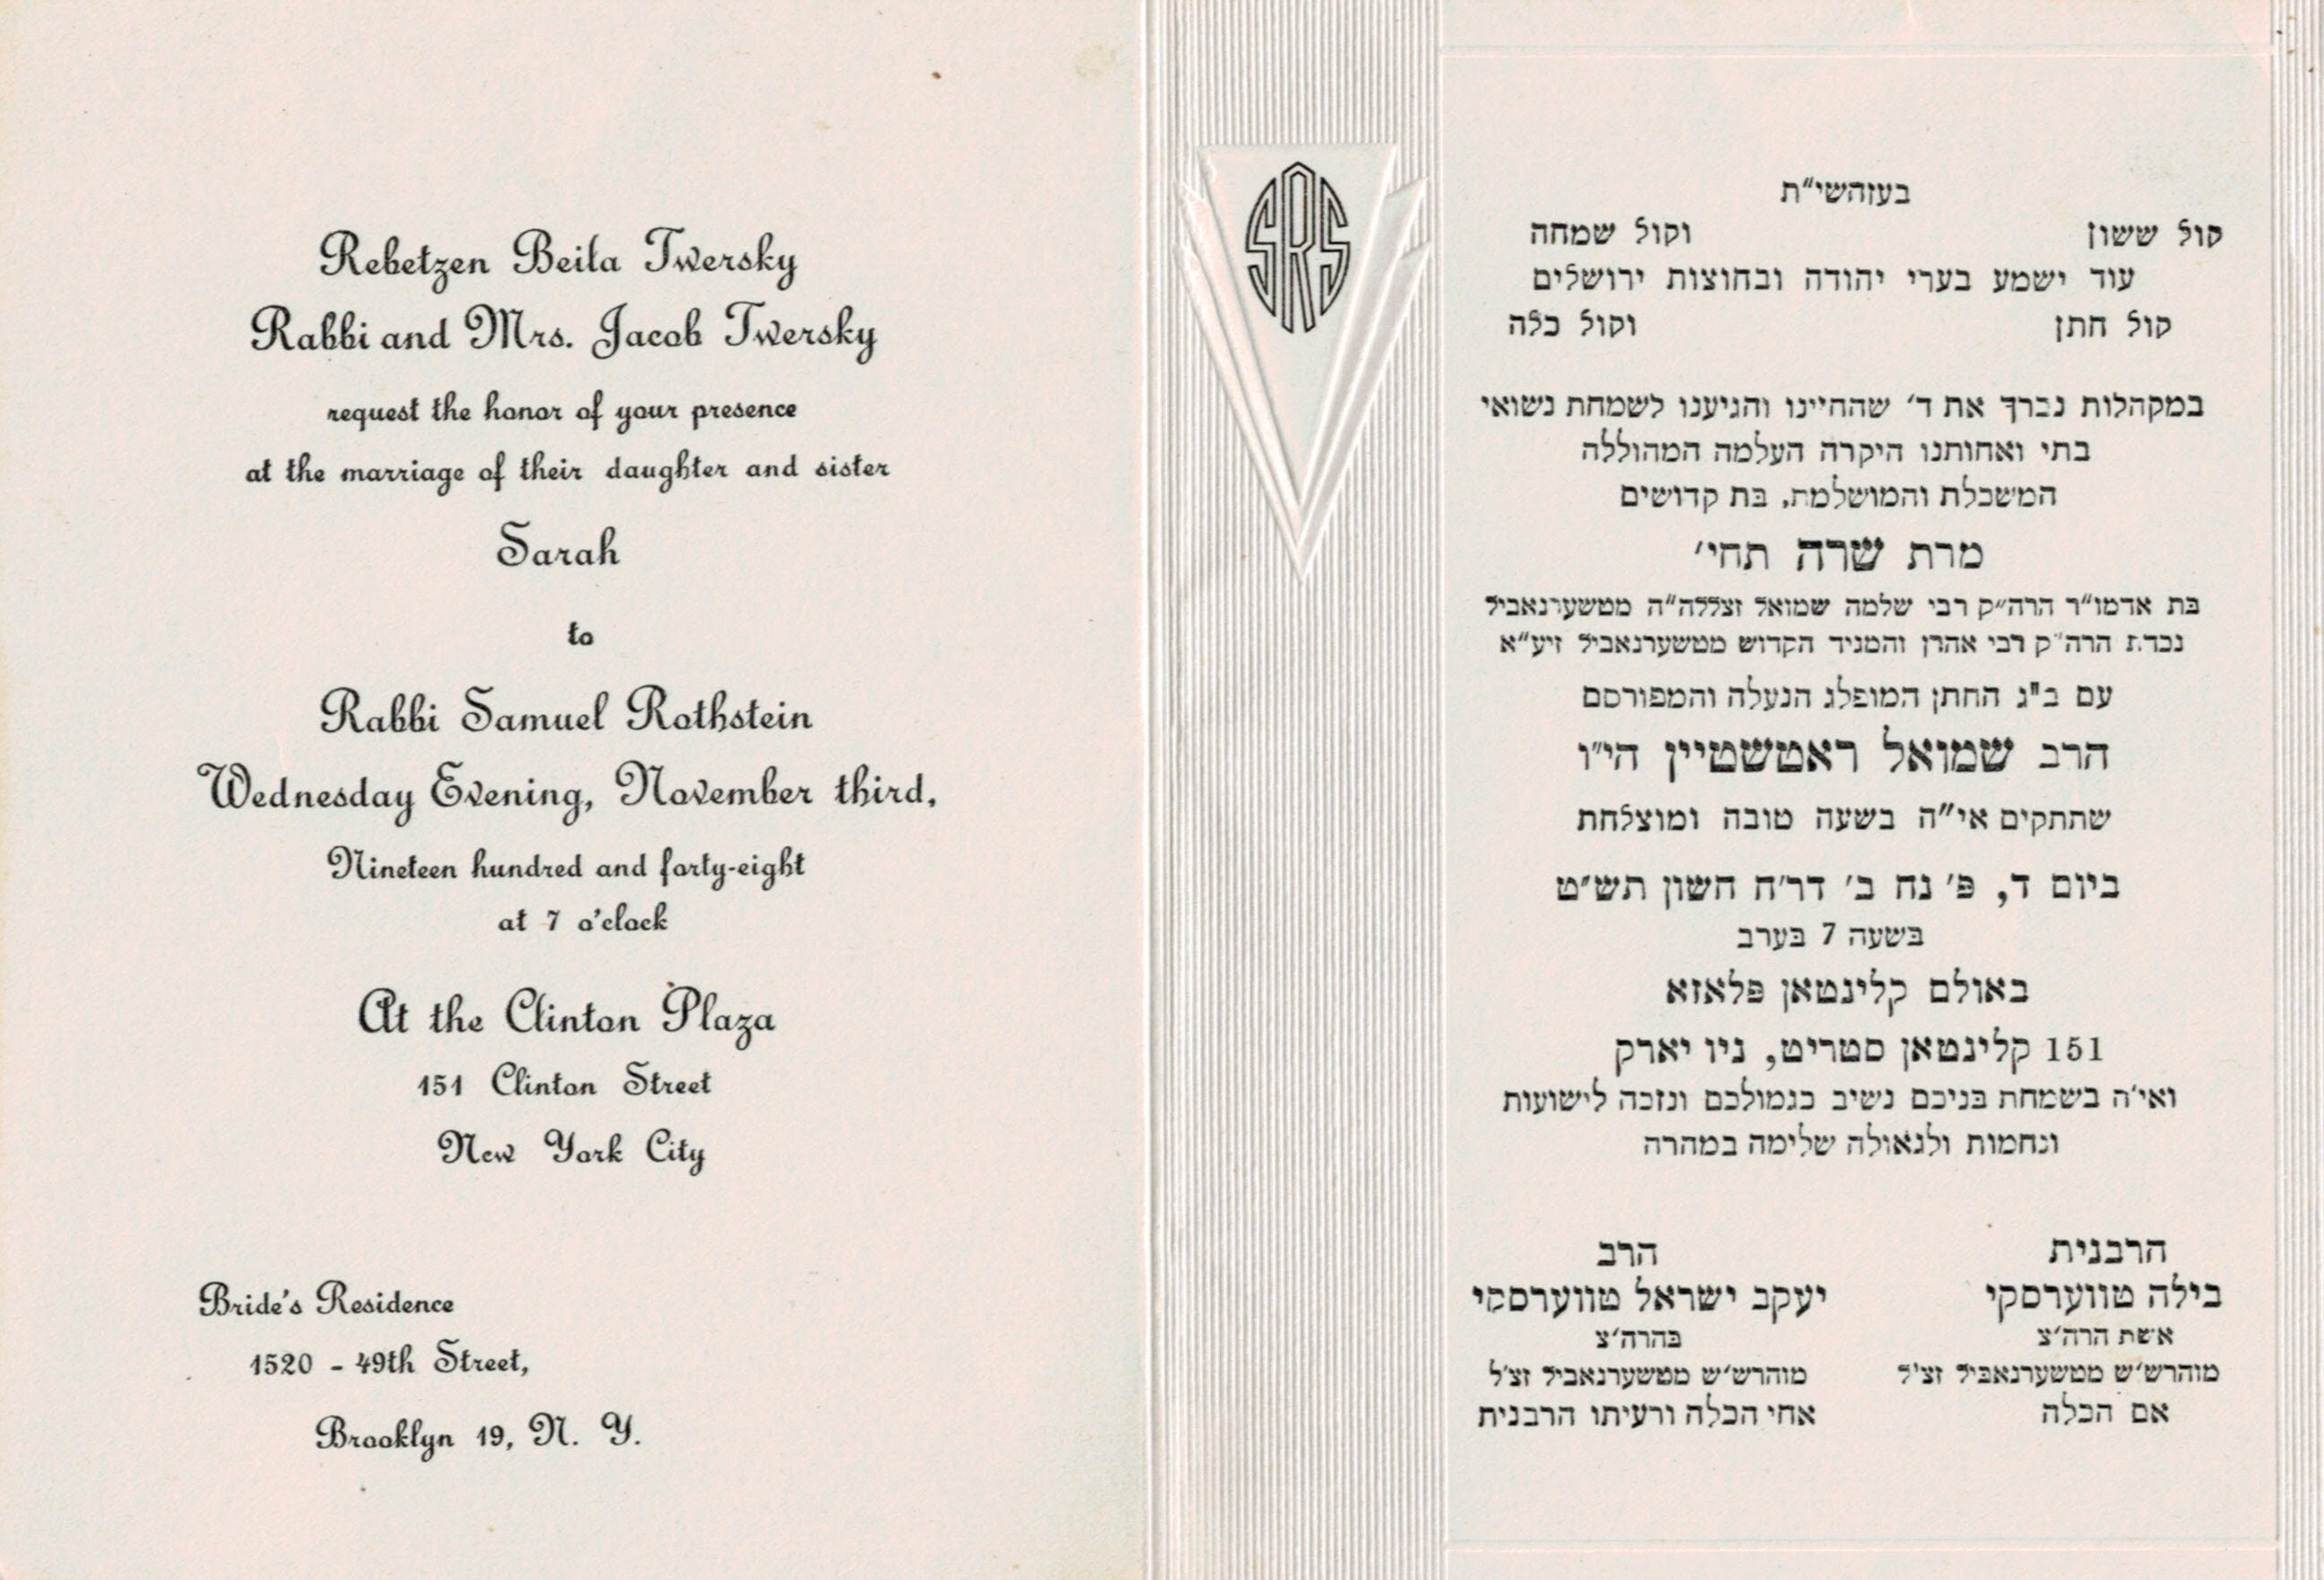 Rebetzen Beila Twersky
Rabbi and Mrs. Jacob Twersky
request the honor of your presence
at the marriage of their daughter and sister
Sarah
to
Rabbi Samuel Rothstein
Wednesday Evening, November third,
Nineteen hundred and forty-eight
at 7 o'clock
At the Clinton Plaza
151 Clinton Street
New York City
Bride's Residence
1520 - 49th Street,
Brooklyn 19, N. Y.
SRS
בעזהשי"ת
קול ששון וקול שמחה
עוד ישמע בערי יהודה ובחוצות ירושלים
קול חתן וקול כלה
במקהלות נברך את ד' שהחיינו והגיענו לשמחת נשואי
בתי ואחותנו היקרה העלמה המהוללה
המשכלת והמושלמת, בת קדושים
מרת שרה תחי'
בת אדמו"ר הרה"ק רבי שלמה שמואל זצללה"ה מטשערנאביל
נכדת הרה"ק רבי אהרן והמגיד הקדוש מטשערנאביל זיע"א
עם ב"ג החתן המופלג הנעלה והמפורסם
הרב שמואל ראטשטיין הי"ו
שתתקים אי"ה בשעה טובה ומוצלחת
ביום ד, פ' נח ב' דר"ח חשון תש"ט
בשעה 7 בערב
באולם קלינטאן פלאזא
151 קלינטאן סטריט, ניו יארק
ואי'ה בשמחת בניכם נשיב כגמולכם ונזכה לישועות
ונחמות ולגאולה שלימה במהרה
הרבנית
בילה טווערסקי
אשת הרה'צ
מוהרש'ש מטשערנאביל זצ'ל
אם הכלה
הרב
יעקב ישראל טווערסקי
בהרה'צ
מוהרש'ש מטשערנאביל זצ'ל
אחי הכלה ורעיתו הרבנית